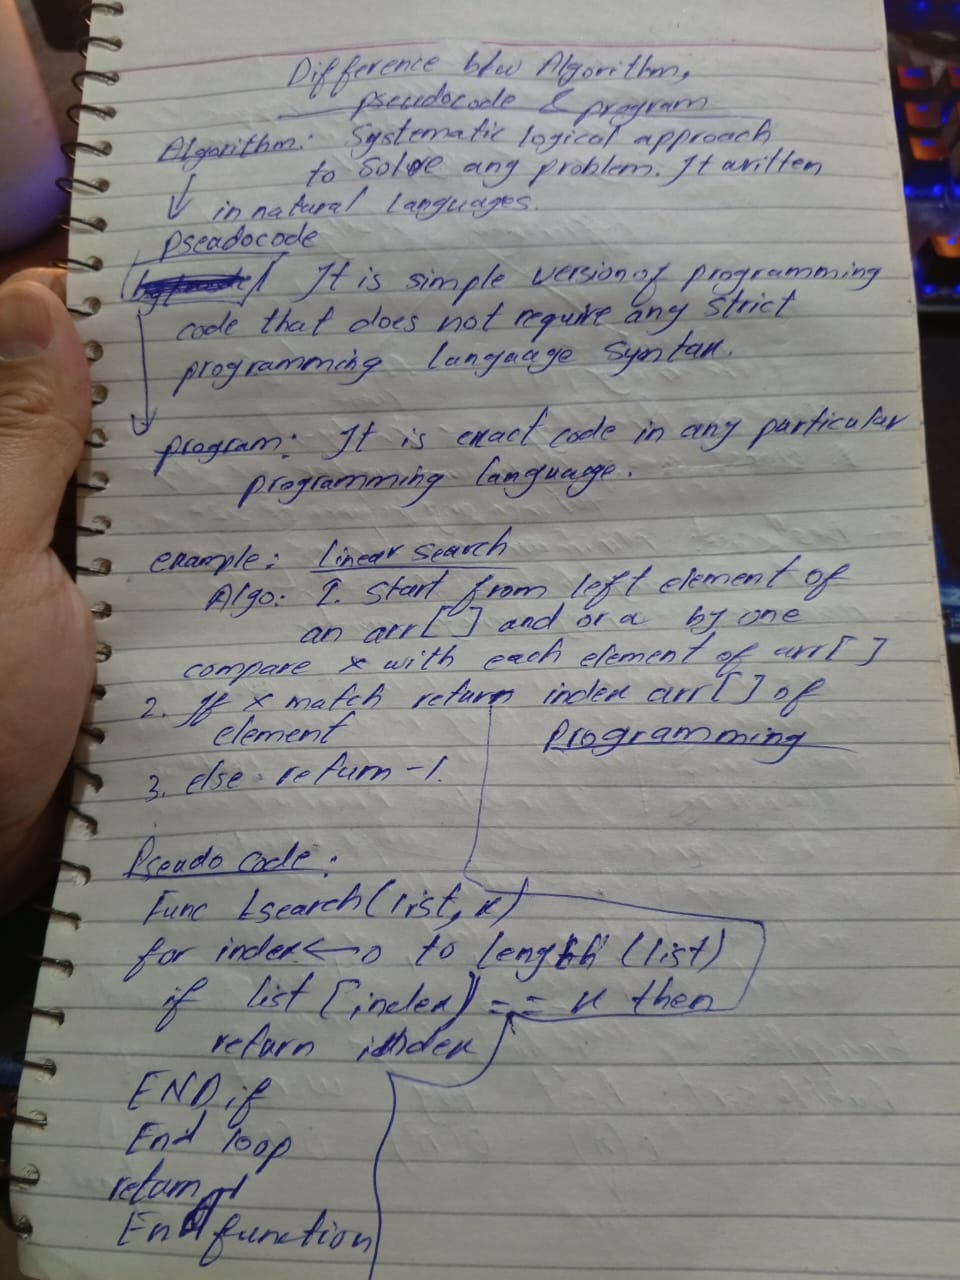 Difference b/w Algorithm,
pseudocode & program
Algorithm: Systematic logical approach
to Solve any problem. It written
in natural languages.
Pseadocode
It is simple version of programming
code that does not require any strict
programming language Syntax.
program: It is exact code in any particular
programming language.
example: linear search
Algo: 1. Start from left element of
an arr[] and by one
compare x with each element of arr[]
2. If x match return index arr[] of
element
Programming
3. else return -1.
Pseudo code:
Func Lsearch(list, x)
for index ← 0 to length (list)
if list [index) == x then
return index
END if
End loop
return
End function